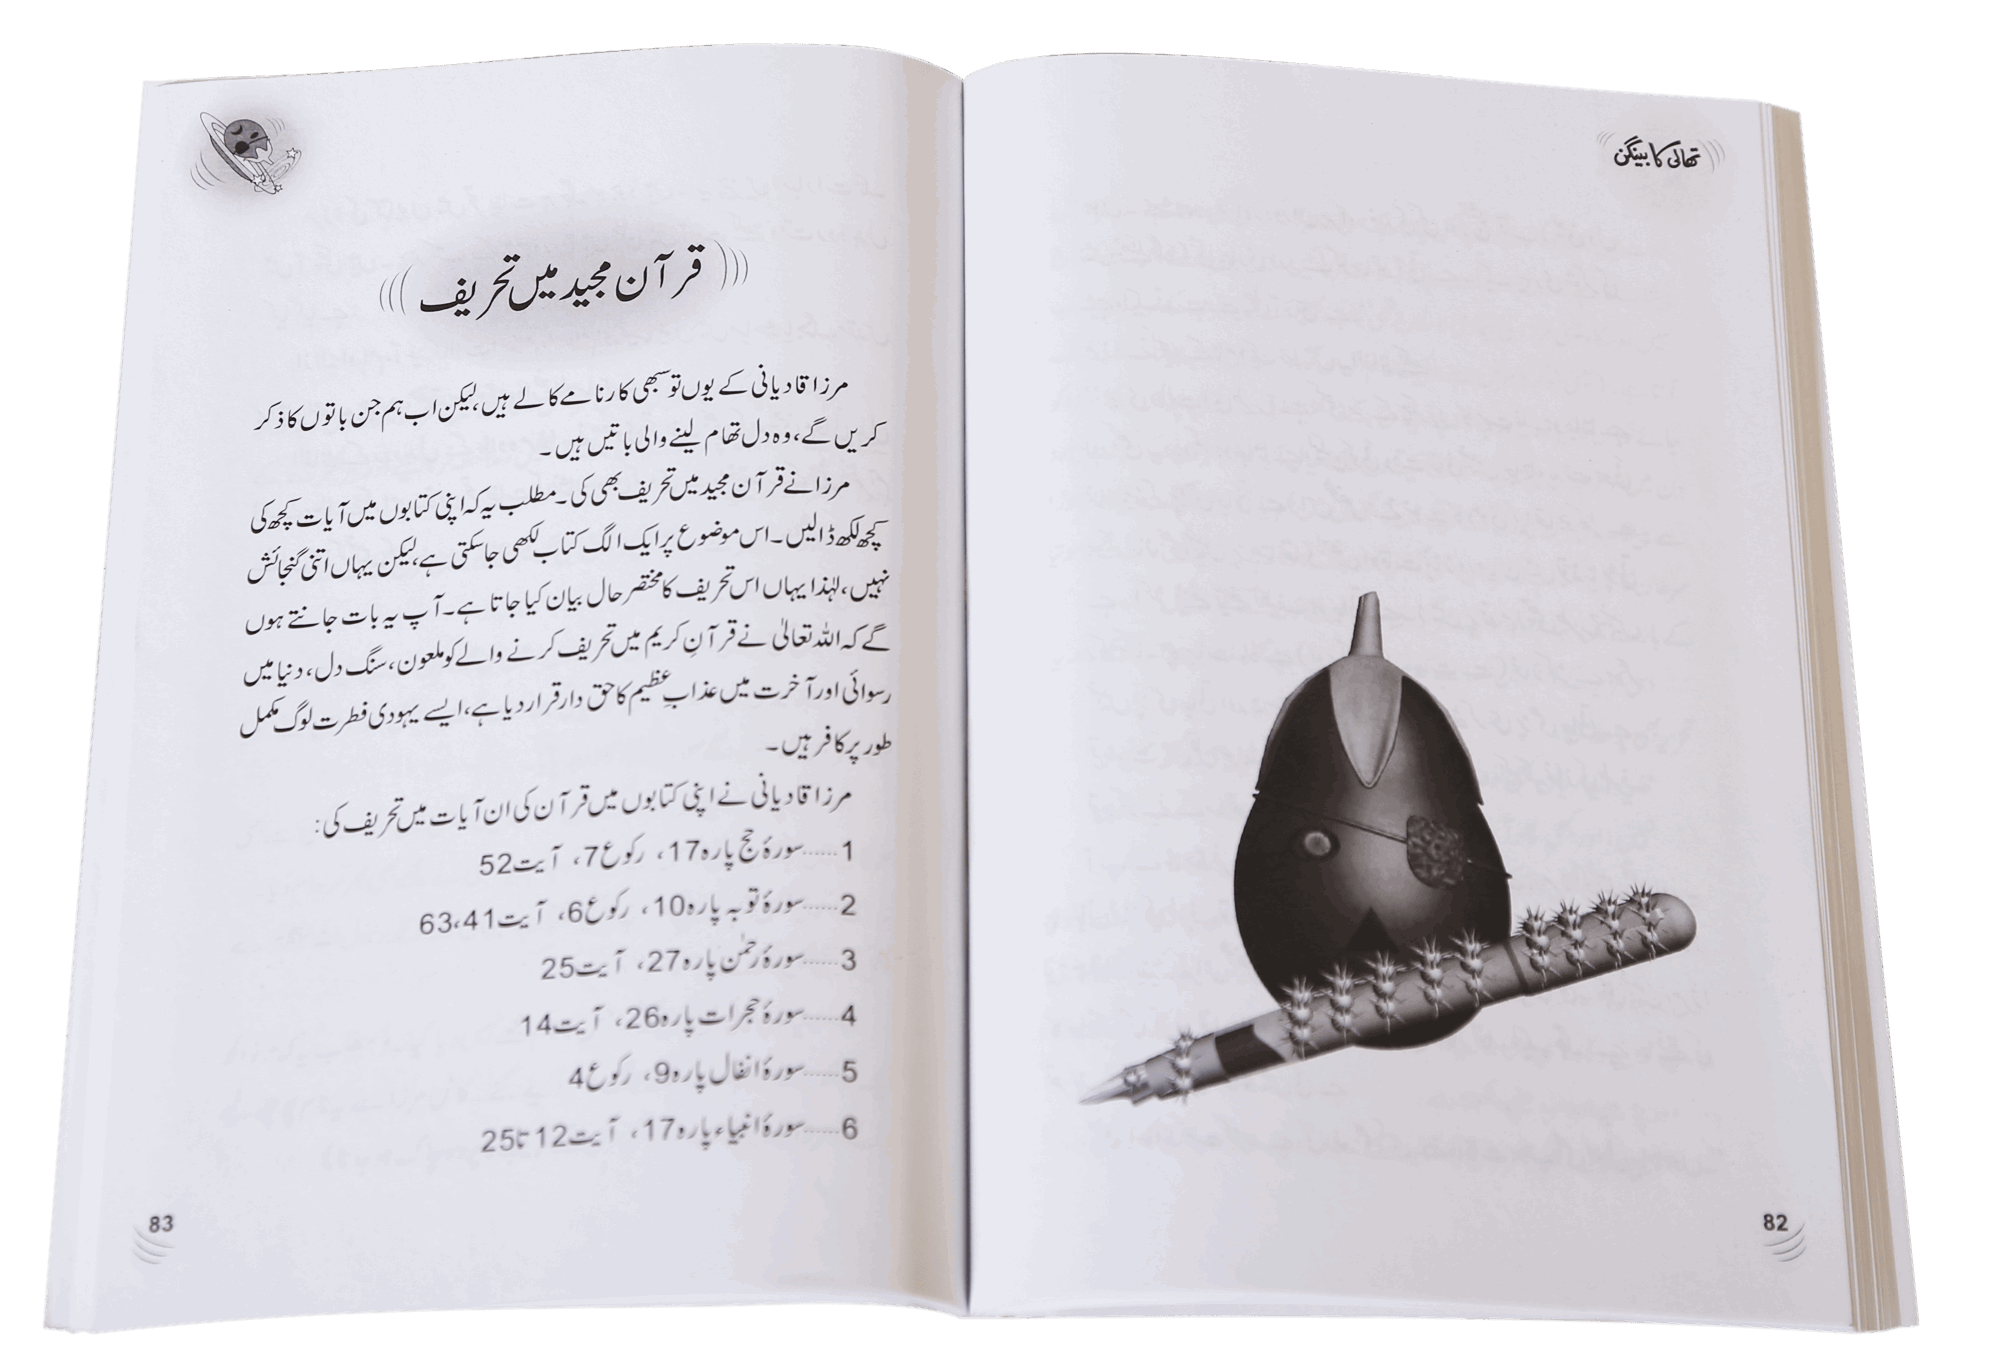 تھالی کا بینگن
82
قرآن مجید میں تحریف
مرزا قادیانی کے یوں تو سبھی کارنامے کالے ہیں، لیکن اب ہم جن باتوں کا ذکر
کریں گے، وہ دل تھام لینے والی باتیں ہیں۔
مرزا نے قرآن مجید میں تحریف بھی کی۔ مطلب یہ کہ اپنی کتابوں میں آیات کچھ کی
کچھ لکھ ڈالیں۔ اس موضوع پر ایک الگ کتاب لکھی جاسکتی ہے، لیکن یہاں اتنی گنجائش
نہیں، لہٰذا یہاں اس تحریف کا مختصر حال بیان کیا جاتا ہے۔ آپ یہ بات جانتے ہوں
گے کہ اللہ تعالیٰ نے قرآنِ کریم میں تحریف کرنے والے کو ملعون، سنگ دل، دنیا میں
رسوائی اور آخرت میں عذابِ عظیم کا حق دار قرار دیا ہے، ایسے یہودی فطرت لوگ مکمل
طور پر کافر ہیں۔
مرزا قادیانی نے اپنی کتابوں میں قرآن کی ان آیات میں تحریف کی:
1......سورۂ حج پارہ 17، رکوع 7، آیت 52
2......سورۂ توبہ پارہ 10، رکوع 6، آیت 41،63
3......سورۂ رحمٰن پارہ 27، آیت 25
4......سورۂ حجرات پارہ 26، آیت 14
5......سورۂ انفال پارہ 9، رکوع 4
6......سورۂ انبیاء پارہ 17، آیت 12 تا 25
83